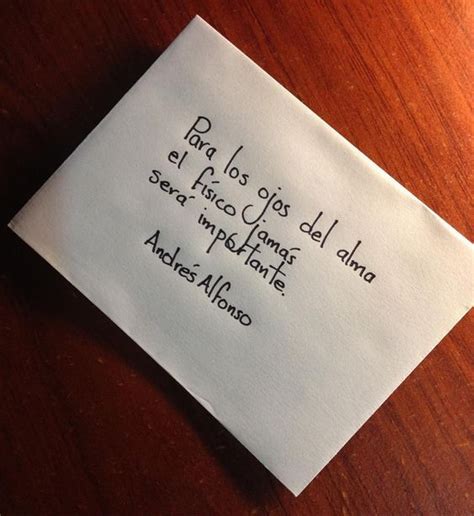 Para los ojos del alma
el físico jamás
será importante.
Andrés Alfonso